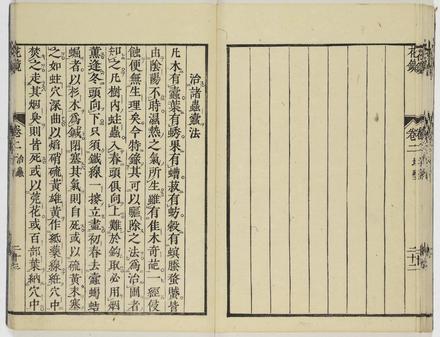 花鏡
卷二
二十二
治諸蟲蠹法
凡木有蠹葉有蟓果有螬菽有蚄穀有螟螣蟊蠈皆
由陰陽不時濕熱之氣所生雖有佳木奇葩一經侵
蝕便無生理矣今特錄其可以驅除之法為治圃者
知之凡樹內蛀蟲入春頭俱向上難於鉤取必用烟
薰逢冬頭向下只須鐵線一搜立盡初春去蠹蝎蛣
蝎者以杉木為鍼閉塞其氣則自死或以硫黃末塞
之如蛀穴深曲以焰硝硫黃雄黃作紙藥線穴中
焚之走其烟臭則皆死或以芫花或百部葉納穴中
花鏡
卷二
治蟲
二十三